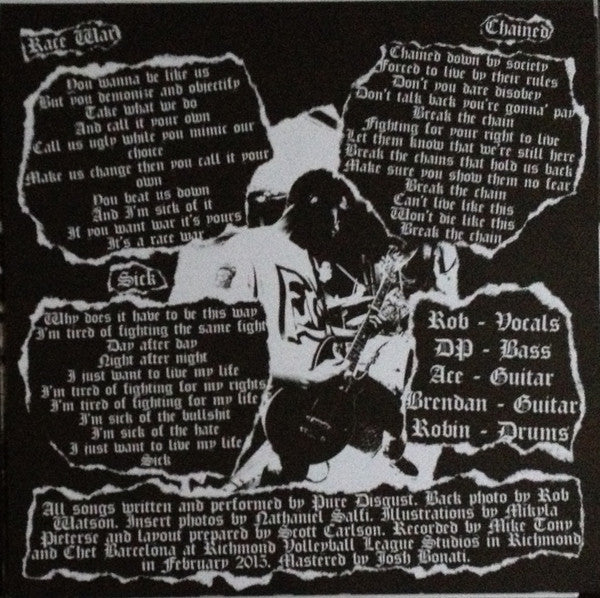 Race War
You wanna be like us
But you demonize and objectify
Take what we do
And call it your own
Call us ugly while you mimic our
choice
Make us change then you call it your
own
You beat us down
And I'm sick of it
If you want war it's yours
It's a race war
Chained
Chained down by society
Forced to live by their rules
Don't you dare disobey
Don't talk back you're gonna' pay
Break the chain
Fighting for your right to live
Let them know that we're still here
Break the chains that hold us back
Make sure you show them no fear
Break the chain
Can't live like this
Won't die like this
Break the chain
Sick
Why does it have to be this way
I'm tired of fighting the same fight
Day after day
Night after night
I just want to live my life
I'm tired of fighting for my rights
I'm tired of fighting for my life
I'm sick of the bullshit
I'm sick of the hate
I just want to live my life
Sick
Rob - Vocals
DP - Bass
Ace - Guitar
Brendan - Guitar
Robin - Drums
All songs written and performed by Pure Disgust. Back photo by Rob
Watson. Insert photos by Nathaniel Salfi. Illustrations by Mikyla
Pieterse and layout prepared by Scott Carlson. Recorded by Mike Tony
and Chet Barcelona at Richmond Volleyball League Studios in Richmond
in February 2015. Mastered by Josh Bonati.